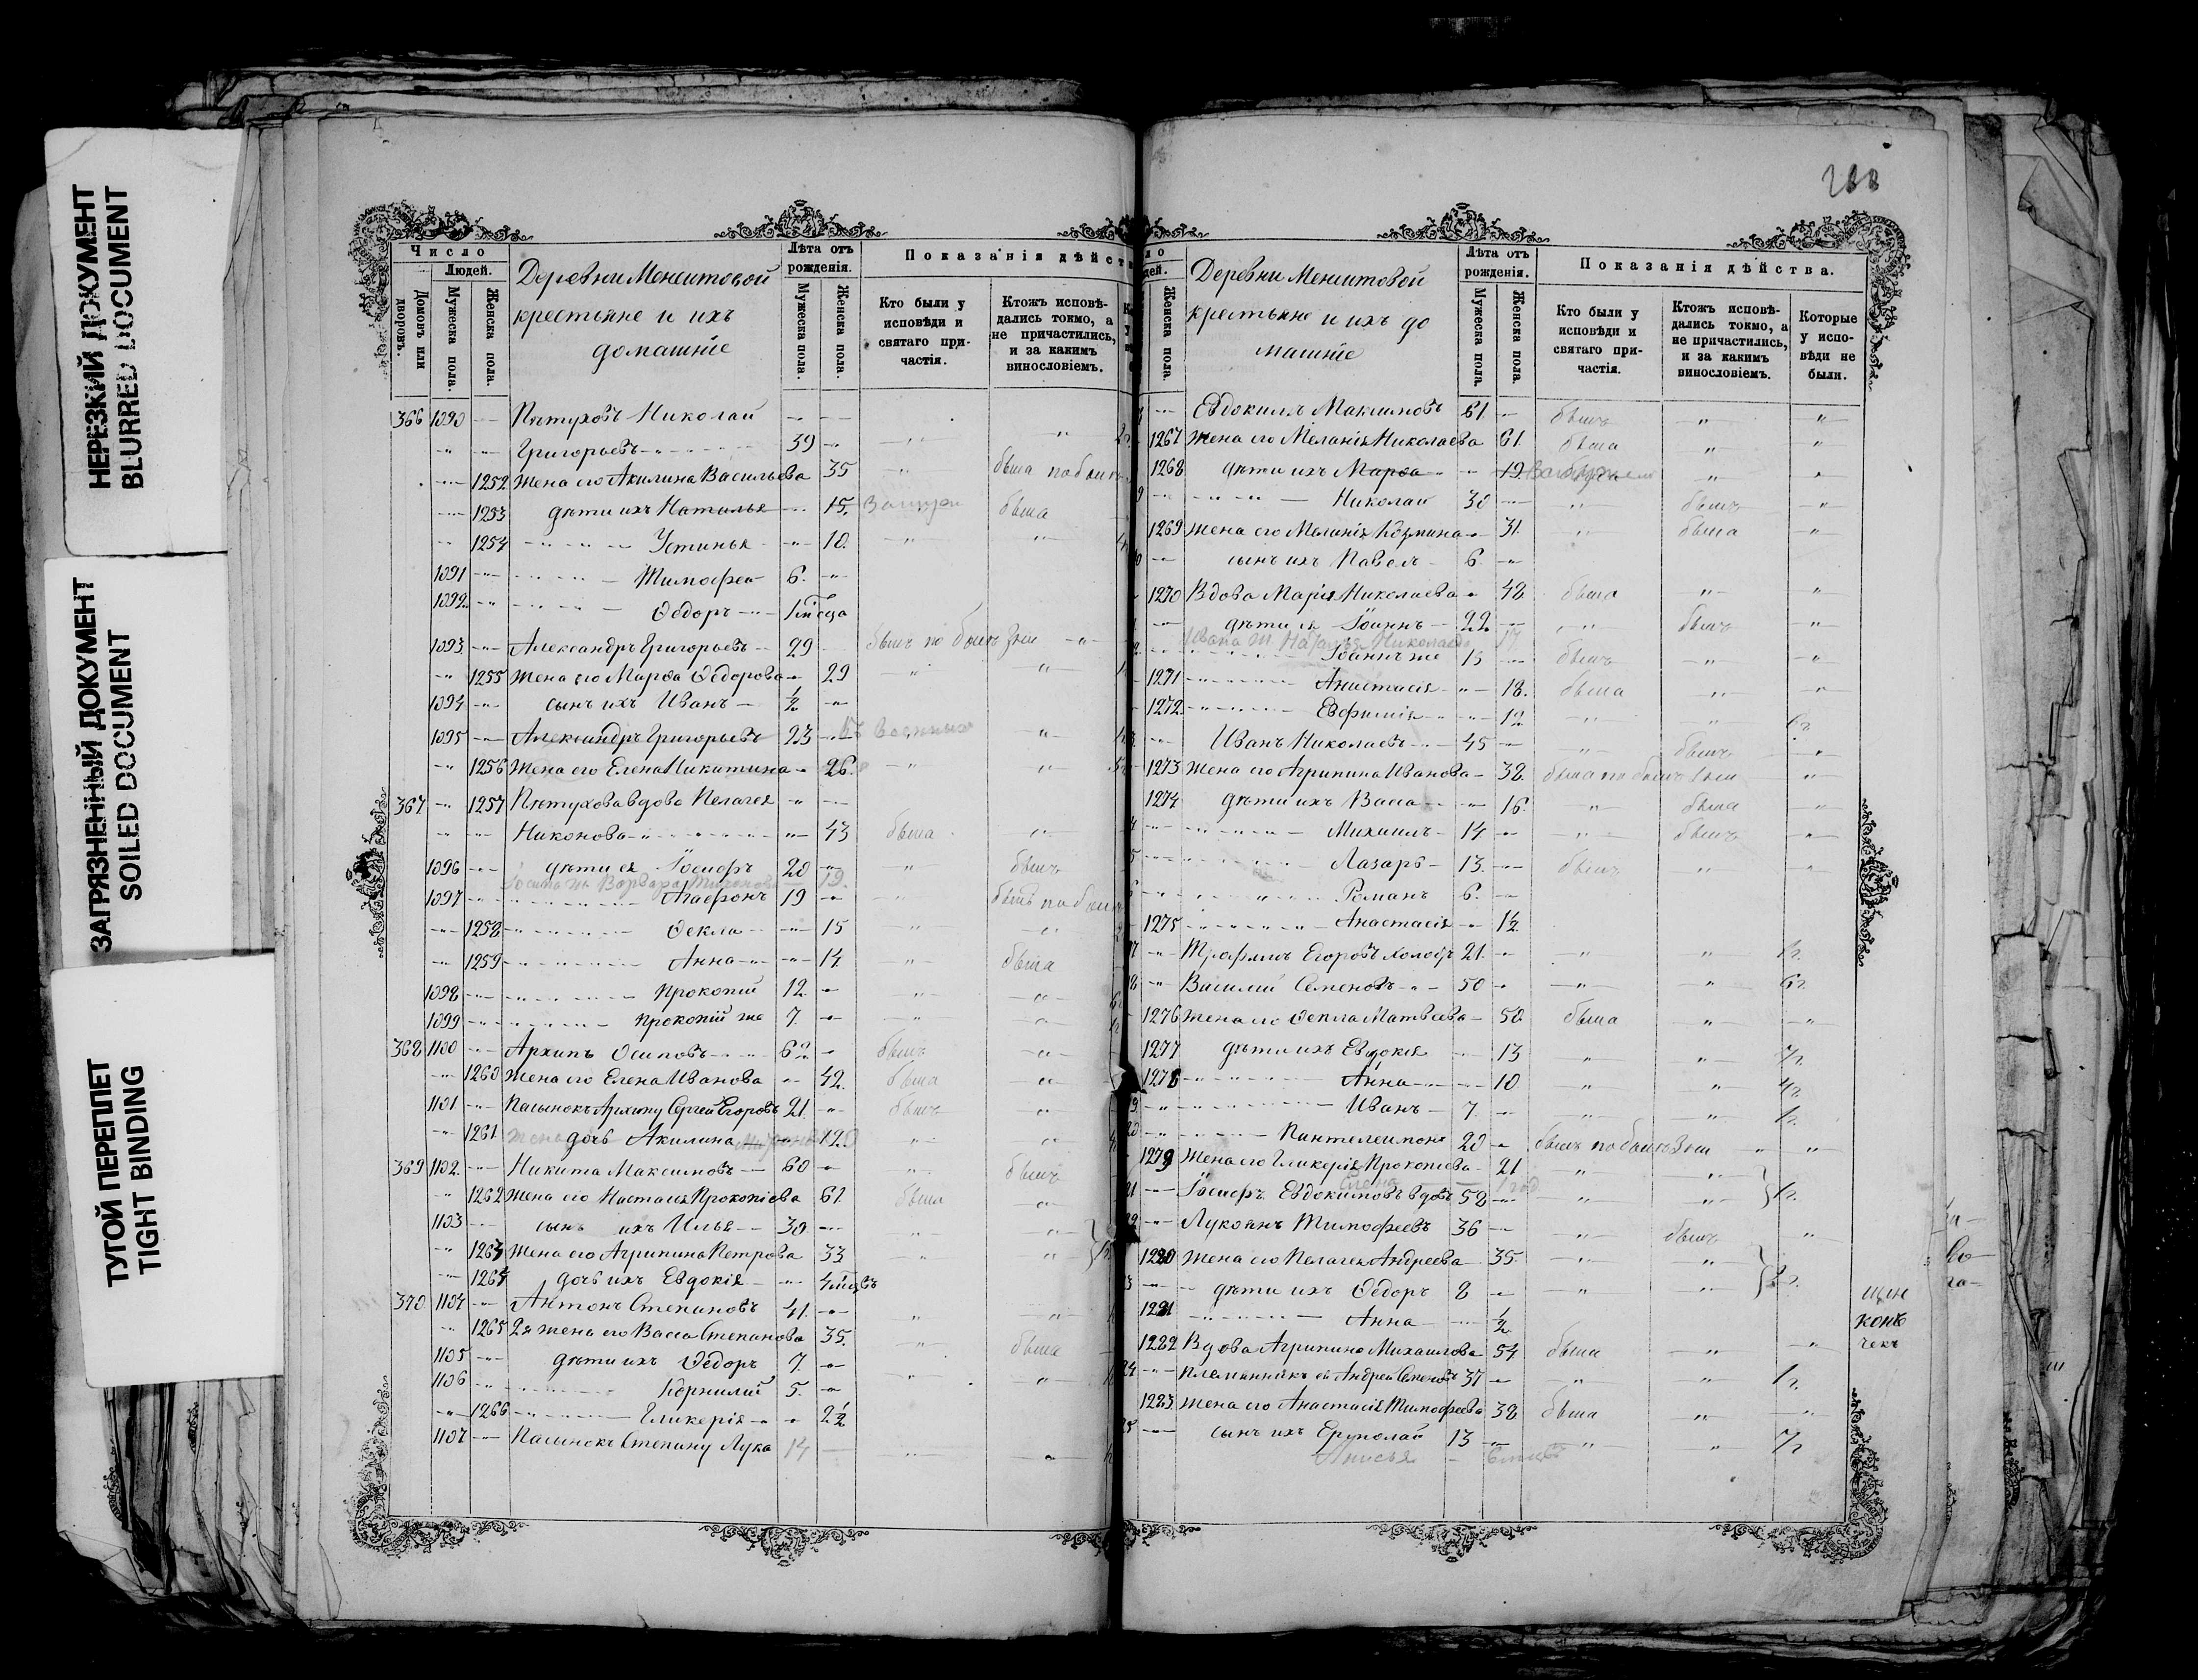 НЕРЕЗКИЙ ДОКУМЕНТ
BLURRED DOCUMENT
ЗАГРЯЗНЕННЫЙ ДОКУМЕНТ
SOILED DOCUMENT
ТУГОЙ ПЕРЕПЛЕТ
TIGHT BINDING
Число
Людей.
Домовъ или дворовъ.
Мужеска пола.
Женска пола.
Деревни Меншитовой
крестьяне и ихъ
домашніе
Лѣта отъ рожденія.
Мужеска пола.
Женска пола.
Показанія дѣйств
Кто были у исповѣди и святаго причастія.
Ктожъ исповѣдались токмо, а не причастились, и за какимъ винословіемъ.
366 1090 Пѣтуховъ Николай
Григорьевъ 39
1252 Жена его Акилина Васильева 35 была по бол
1253 дѣти ихъ Наталья 15. была
1254 Устинья 10.
1091 Тимофеа 6.
1092 Ѳедоръ
1093 Александръ Григорьевъ 29
1255 Жена его Марѳа Ѳедорова 29
1094 сынъ ихъ Иванъ ½
1095 Александръ Григорьевъ 23
1256 Жена его Елена Никитина 26.
367 1257 Пѣтухова вдова Пелагея
Никонова 43 была
1096 дѣти ея Іосифъ 20 былъ
1097 Агафонъ 19
1258 Ѳекла 15
1259 Анна 14 была
1098 Прокопій 12
1099 Прокопій же 7.
368 1100 Архипъ Осиповъ 62 былъ
1260 Жена его Елена Иванова 42. была
1101 Пасынокъ Архипу Сергей Егоровъ 21. былъ
1261 дочь Акилина
369 1102. Никита Максимовъ 60 былъ
1262 Жена его Настасія Прокопіева 61 была
1103 сынъ ихъ Илья 30
1263 Жена его Агрипина Петрова 33
1264 дочь ихъ Евдокія
370 1104 Антонъ Степановъ 41.
1265 2я жена его Васса Степанова 35. была
1105 дѣти ихъ Ѳедоръ 7.
1106 Корнилій 5.
1266 Гликерія 2½
1107 Пасынокъ Степану Лука 14
Женска пола.
Деревни Меншитовой
крестьяне и ихъ до
машніе
Лѣта отъ рожденія.
Мужеска пола.
Женска пола.
Показанія дѣйства.
Кто были у исповѣди и святаго причастія.
Ктожъ исповѣдались токмо, а не причастились, и за какимъ винословіемъ.
Которые у исповѣди не были.
Евдокимъ Максимовъ 61. былъ
1267 Жена его Меланія Николаева 61. была
1268 дѣти ихъ Марѳа 19.
Николай 30 былъ
1269 Жена его Меланія Козмина 31. была
сынъ ихъ Павелъ 6.
1270 Вдова Марія Николаева 48 была
дѣти ея Іоаннъ 22. былъ
Іоаннъ же 15 былъ
1271 Анастасія 18. была
1272. Евфимія 12
Иванъ Николаевъ 45 былъ
1273 Жена его Агрипина Иванова 38.
1274 дѣти ихъ Васса 16. была
Михаилъ 14. былъ
Лазарь 13. былъ
Романъ 6.
1275 Анастасія 1½
Трофимъ Егоровъ 21.
Василій Семеновъ 50
1276 Жена его Ѳекла Матвеева 50. была
1277 дѣти ихъ Евдокія 13
1278 Анна 10
Иванъ 7.
Пантелеимонъ 20
1279 Жена его Гликерія Прокопіева 21
Іосифъ Евдокимовъ вдовъ 58
Лукоянъ Тимофеевъ 36 былъ
1280 Жена его Пелагея Андреева 35.
дѣти ихъ Ѳедоръ 8
1281 Анна ½
1282 Вдова Агрипина Михаилова 54 была
Племянникъ ей Андрей Семеновъ 37
1283 Жена его Анастасія Тимофеева 38 была
сынъ ихъ Ермолай 13
Анисья